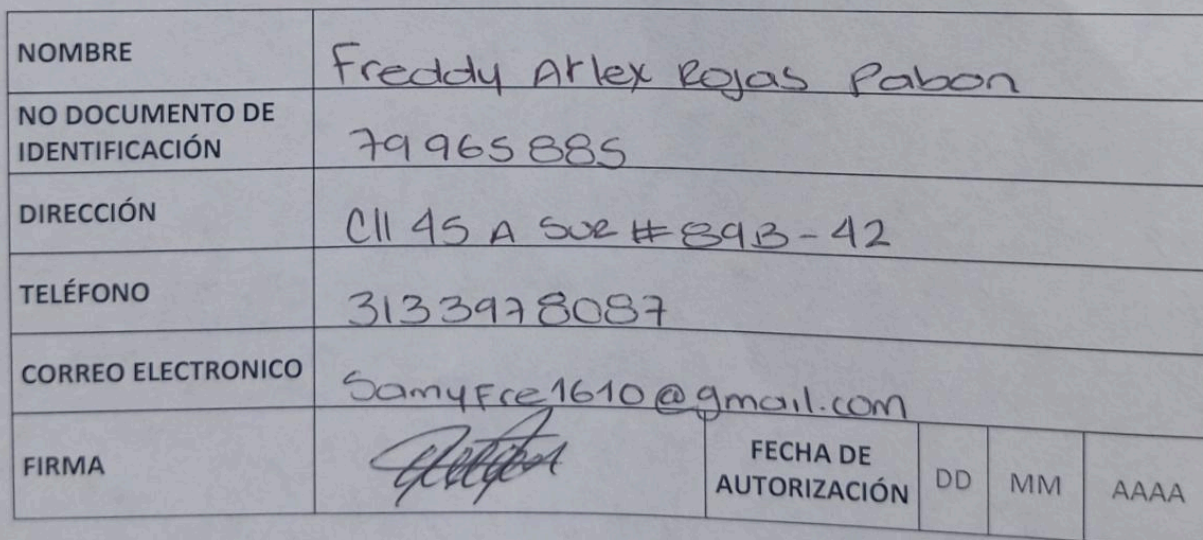 NOMBRE Freddy Arlex Rojas Pabon
NO DOCUMENTO DE
IDENTIFICACIÓN 79965885
DIRECCIÓN Cll 45 A SUR # 89B-42
TELÉFONO 3133978087
CORREO ELECTRONICO Samyfre1610@gmail.com
FIRMA FECHA DE
AUTORIZACIÓN DD MM AAAA